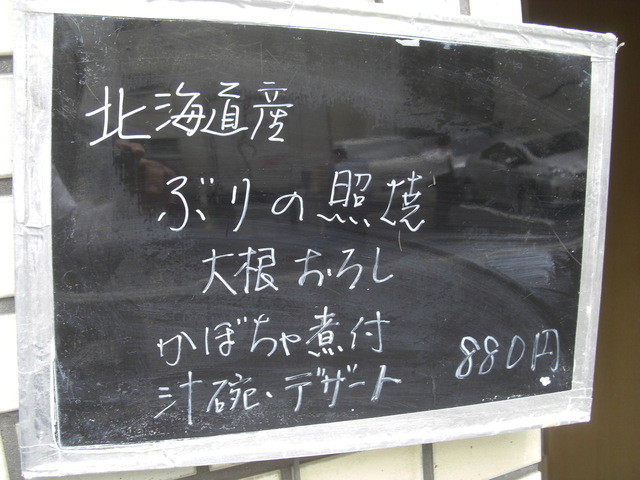 北海道産
ぶりの照焼
大根おろし
かぼちゃ煮付
汁碗・デザート
880円